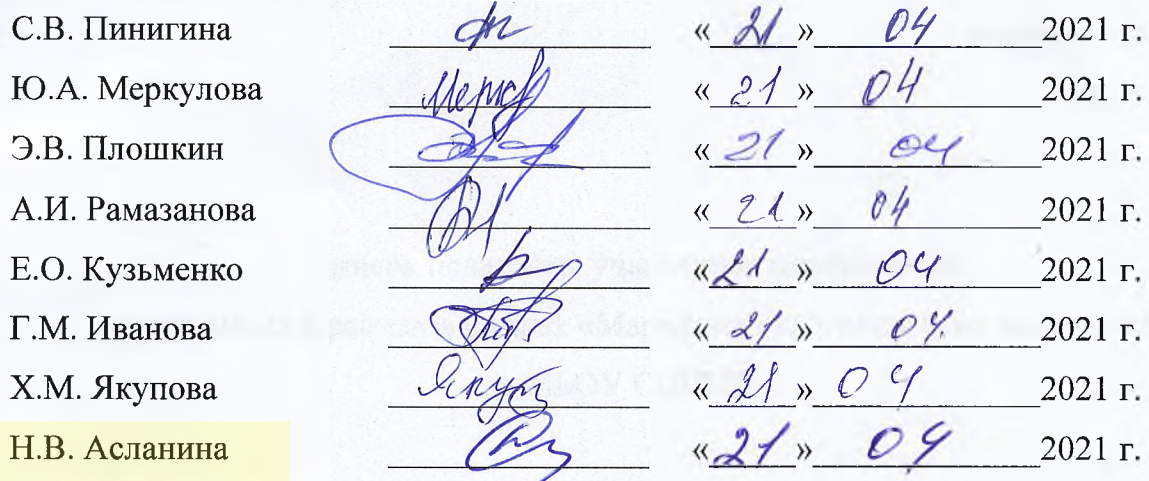 С.В. Пинигина «21» 04 2021 г.
Ю.А. Меркулова «21» 04 2021 г.
Э.В. Плошкин «21» 04 2021 г.
А.И. Рамазанова «21» 04 2021 г.
Е.О. Кузьменко «21» 04 2021 г.
Г.М. Иванова «21» 04 2021 г.
Х.М. Якупова «21» 04 2021 г.
Н.В. Асланина «21» 04 2021 г.